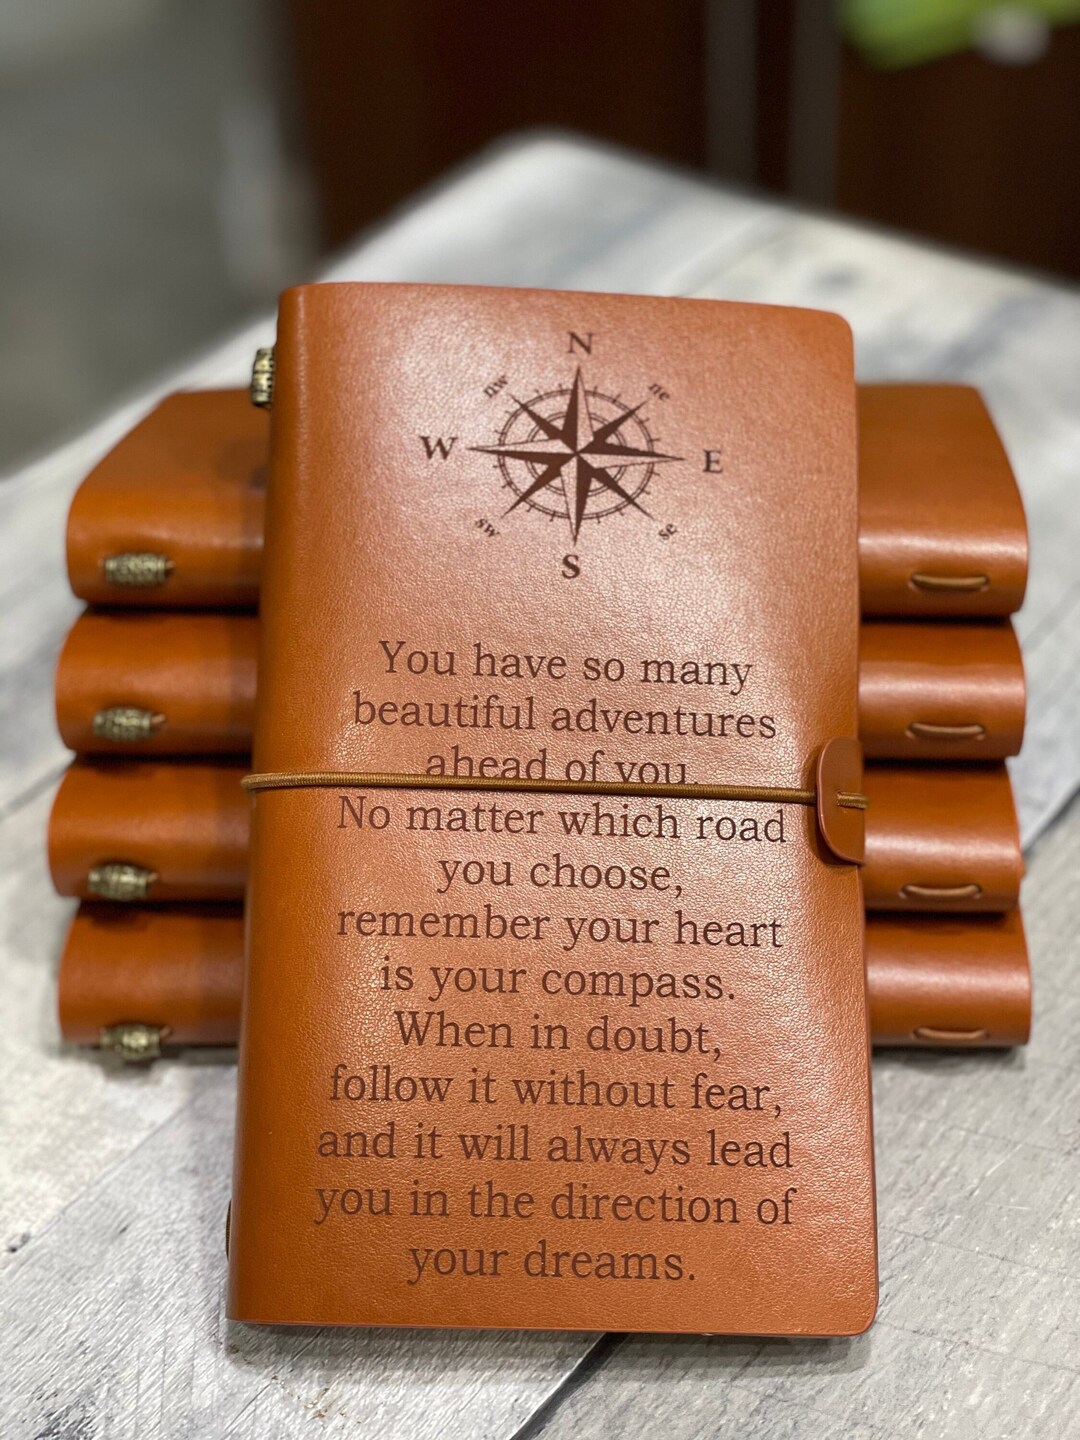 N
nw ne
W E
sw se
S
You have so many
beautiful adventures
ahead of you.
No matter which road
you choose,
remember your heart
is your compass.
When in doubt,
follow it without fear,
and it will always lead
you in the direction of
your dreams.